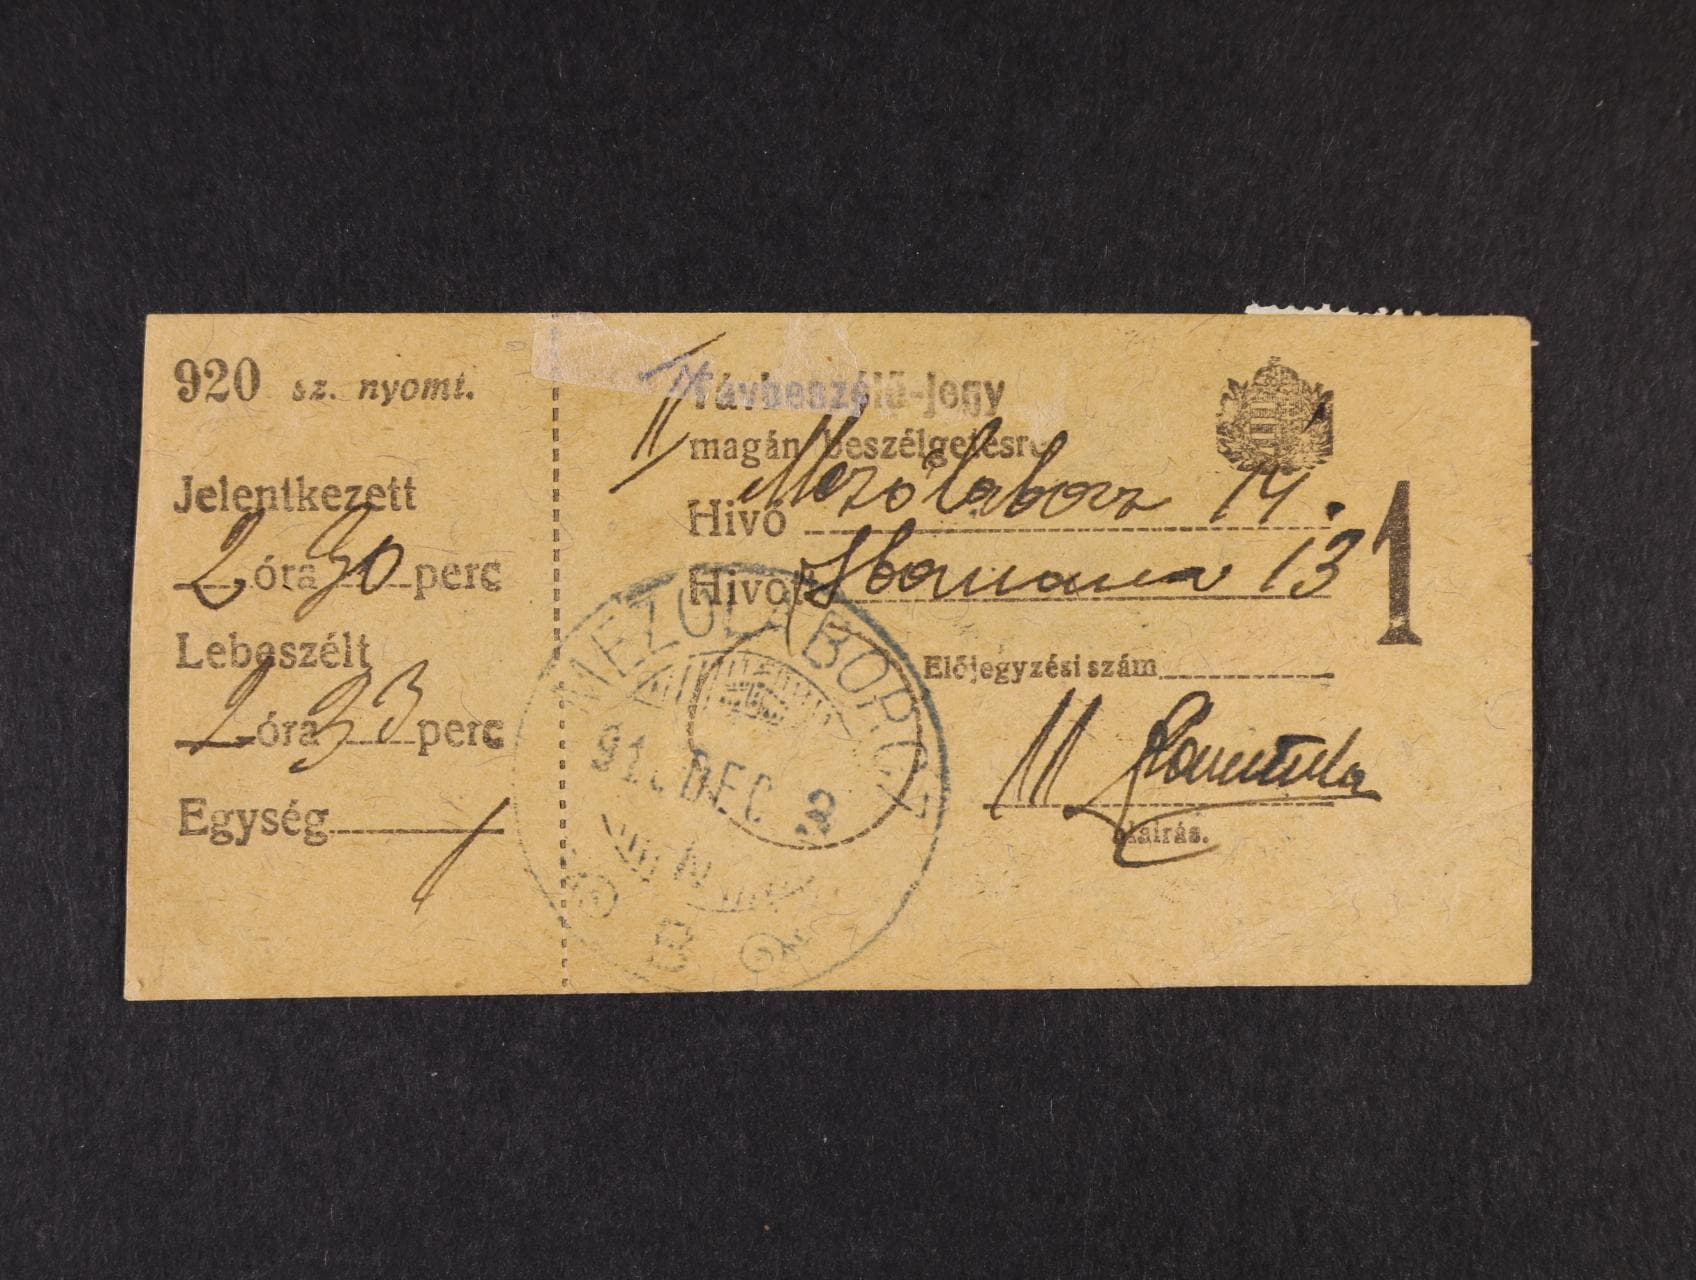 920 sz. nyomt.
Jelentkezett
2 óra 30 perc
Lebeszélt
2 óra 33 perc
Egység 1
Távbeszélő-jegy
magán beszélgetésre
Hivó Mezőlaborz 14.
Hivott Homonna 13
1
Előjegyzési szám
aláirás.
MEZŐLABORCZ
DEC
B